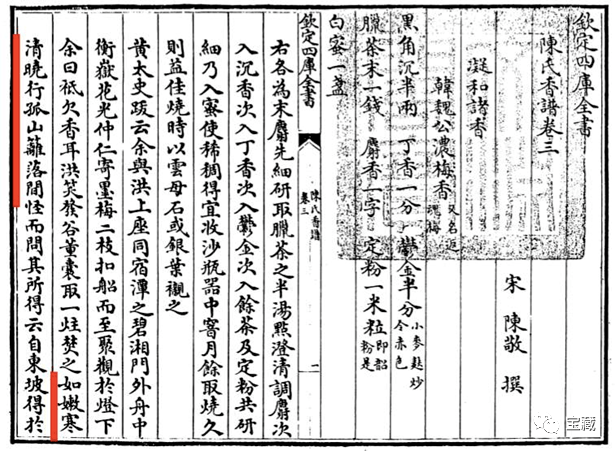 欽定四庫全書
陳氏香譜卷三
宋 陳敬 撰
凝和諸香
韓魏公濃梅香 又名返魂梅
黑角沉半兩 丁香一分 鬱金半分 小麥麩炒令赤色
臘茶末一錢 麝香一字 定粉一米粒 即韶粉是
白蜜一盞
欽定四庫全書
陳氏香譜
卷三
一
右各為末麝先細研取臘茶之半湯點澄清調麝次
入沉香次入丁香次入鬱金次入餘茶及定粉共研
細乃入蜜使稀稠得宜妝沙瓶器中窨月餘取燒久
則益佳燒時以雲母石或銀葉襯之
黃太史跋云余與洪上座同宿潭之碧湘門外舟中
衡嶽花光仲仁寄墨梅二枝扣船而至聚觀於燈下
余曰祇欠香耳洪笑發谷董囊取一炷焚之如嫩寒
清曉行孤山籬落間怪而問其所得云自東坡得於
宝藏